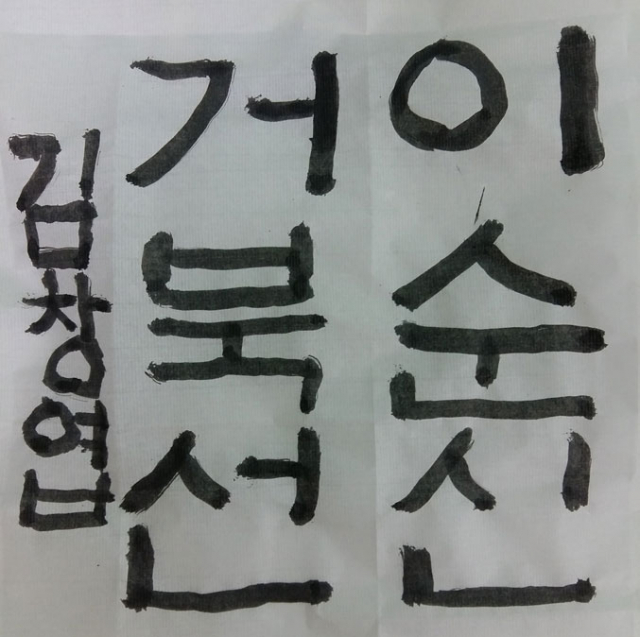 이순신
거북선
김창엽